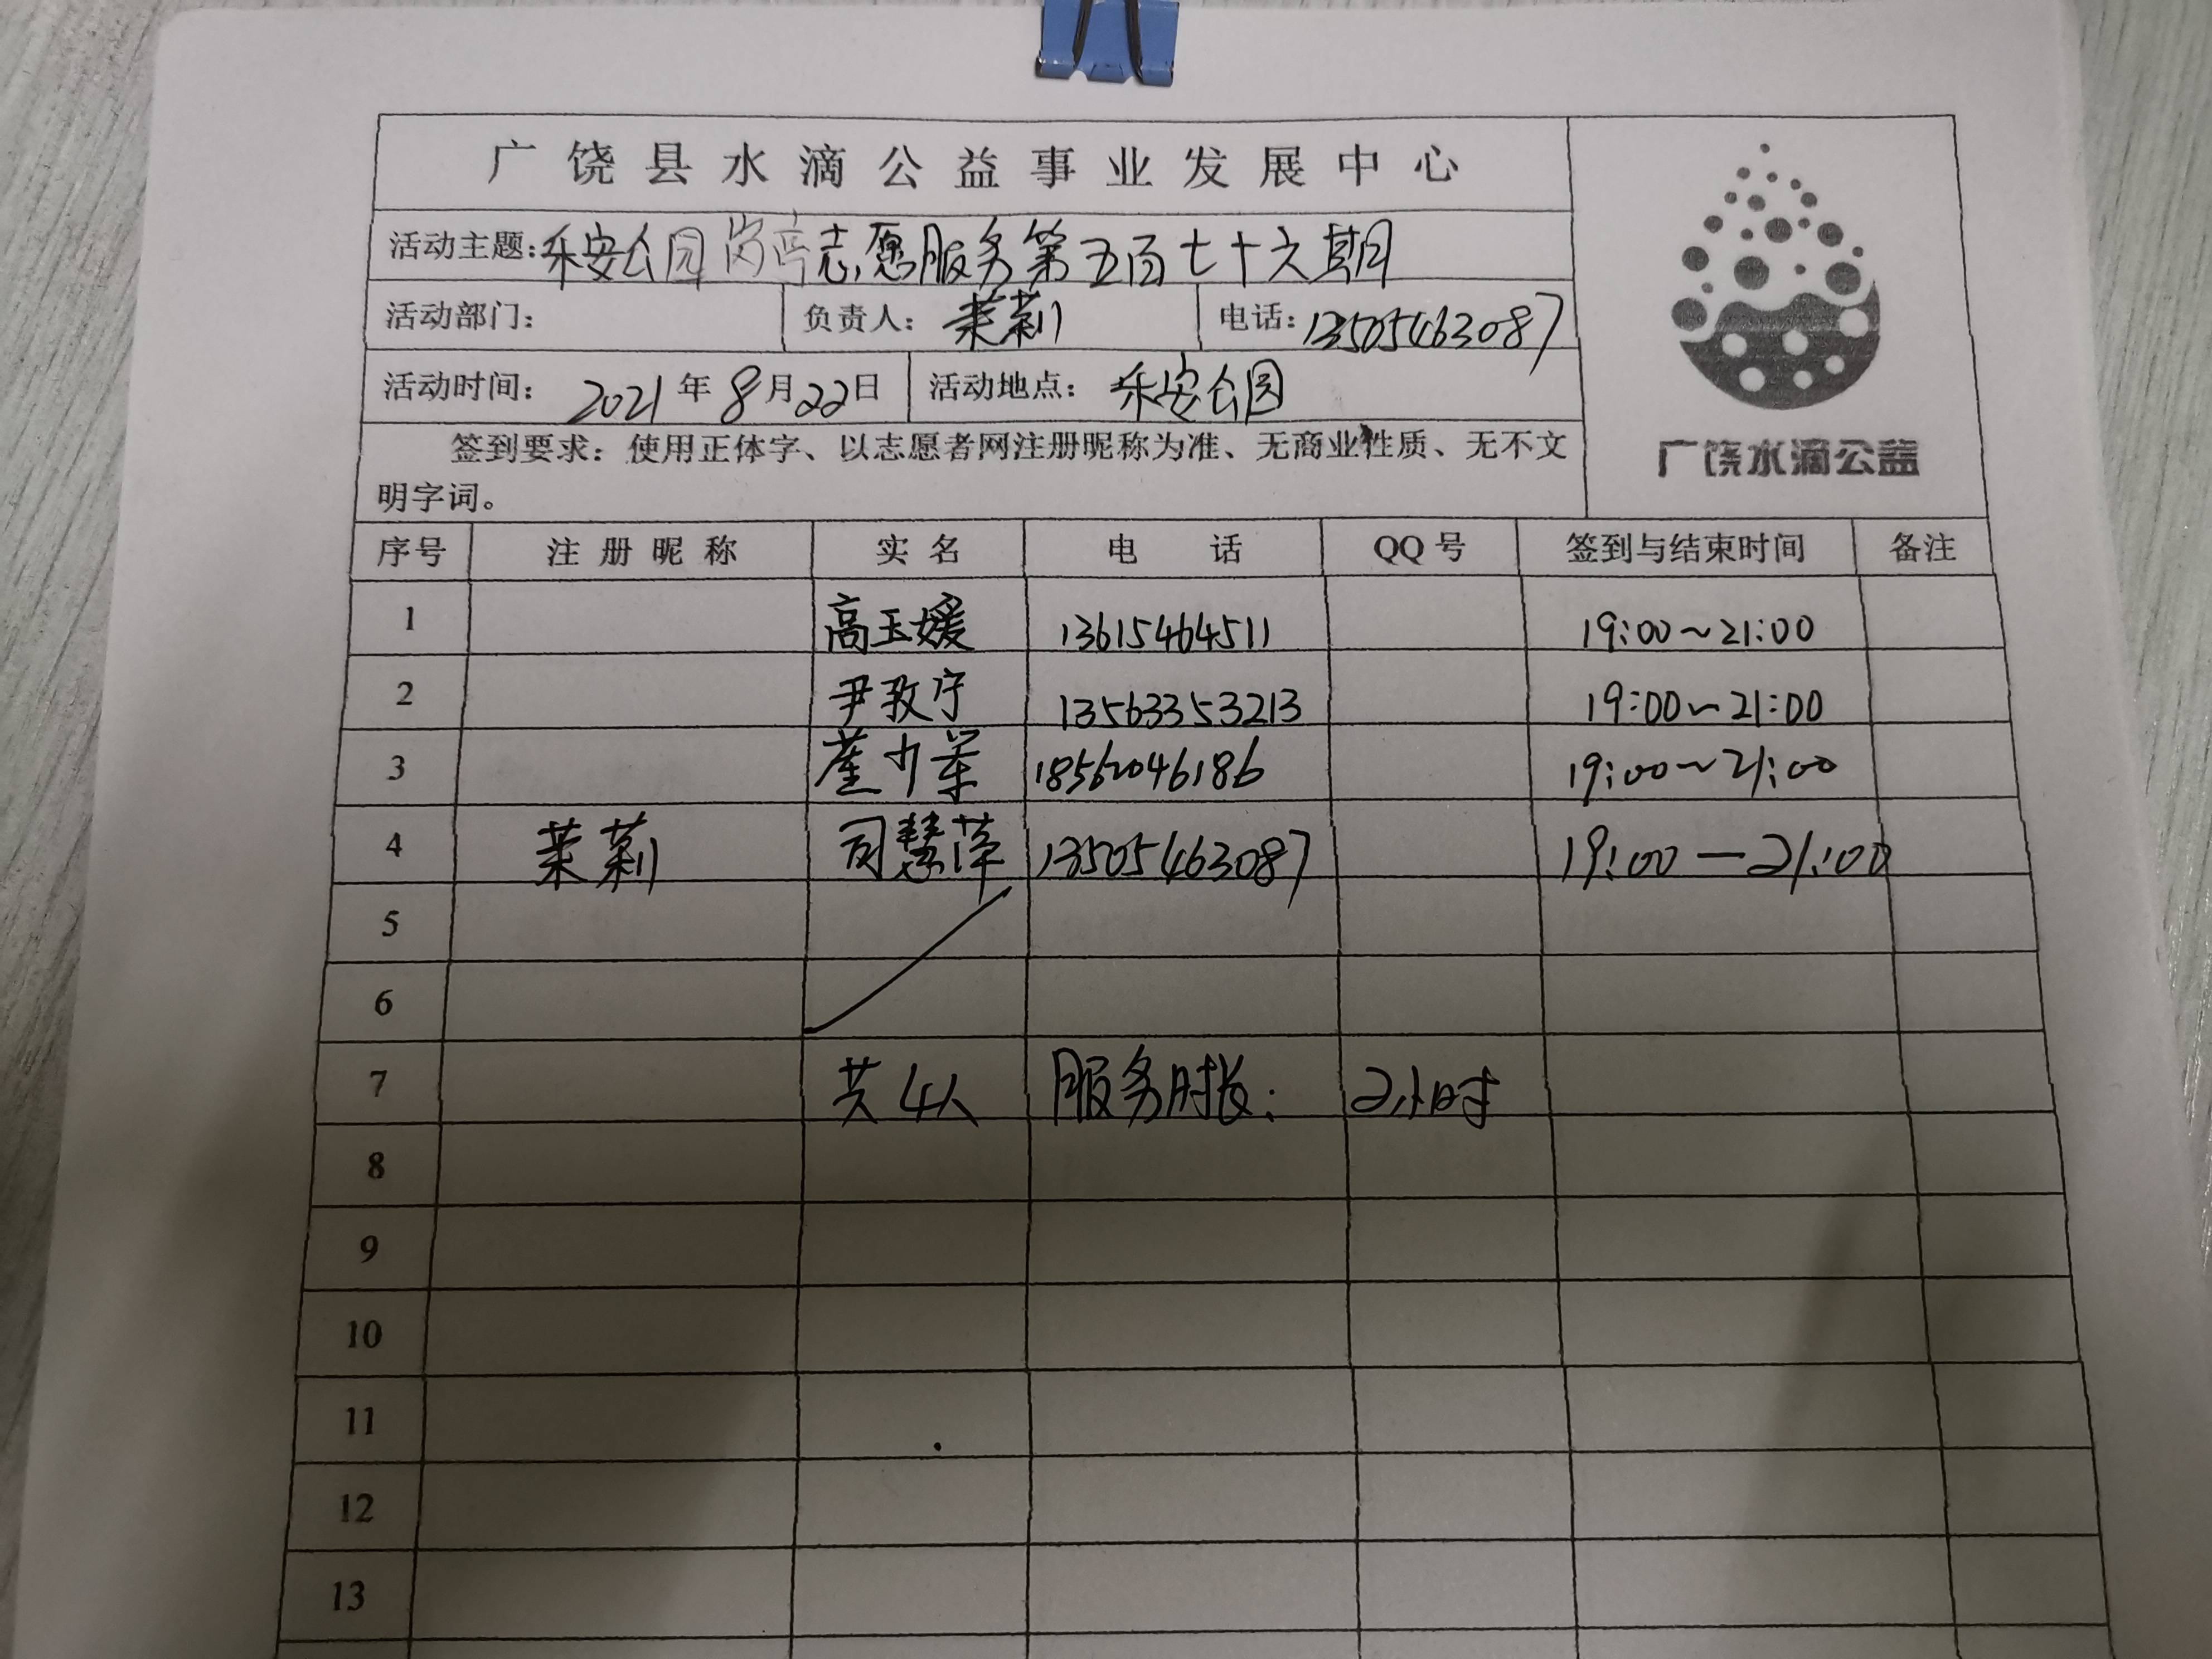 广饶县水滴公益事业发展中心
活动主题:乐安公园岗亭志愿服务第五百七十六期
活动部门: 负责人: 茉莉 电话:13505463087
活动时间: 2021年8月22日 活动地点: 乐安公园
签到要求：使用正体字、以志愿者网注册昵称为准、无商业性质、无不文
明字词。
广饶水滴公益
序号 注册昵称 实名 电话 QQ号 签到与结束时间 备注
1 高玉媛 13615464511 19:00~21:00
2 尹孜宁 13563353213 19:00~21:00
3 18562046186 19:00~21:00
4 茉莉 司慧萍 13505463087 19:00—21:00
5
6
7 共4人 服务时长: 2小时
8
9
10
11
12
13